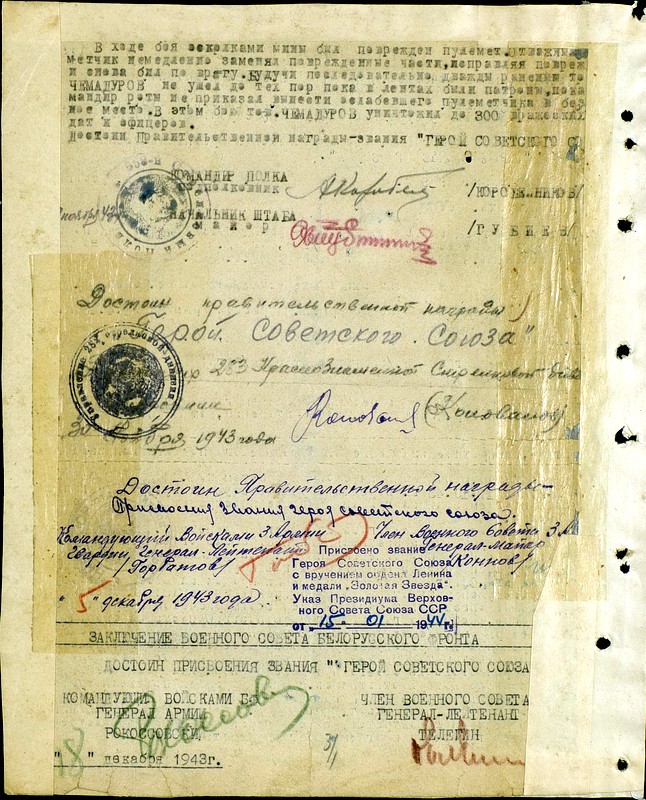 В ходе боя осколками мины был поврежден пулемет.отважны
метчик немедленно заменял поврежденные части,исправляя повреж
и снова бил по врагу.Будучи последовательно дважды ранении то
ЧЕМАДУРОВ не ушел до тех пор пока в лентах были патроны,пока
мандир роты не приказал вынести ослабевшего пулеметчика в без
ное место.В этом бою тов.ЧЕМАДУРОВ уничтожил до 300 вражеских
дат и офицеров.
Достоин Правительственной награды-звания "ГЕРОЙ СОВЕТСКОГО С
КОМАНДИР ПОЛКА
подполковник /КОРОБЕЙНИКОВ/
НАЧАЛЬНИК ШТАБА
майор /ГУБИЕВ/
Достоин правительственной награды
"Герой Советского Союза"
283 Краснознаменной Стрелковой
(Коновалов)
1943 года
Достоин Правительственной награды-
присвоения звания героя советского союза.
Командующий Войсками 3 Армии Член Военного Совета 3 А
Гвардии Генерал-Лейтенант Генерал-Майор
/Горбатов/ Коннов/
"5" декабря 1943 года
Присвоено звание
Героя Советского Союза
с вручением ордена Ленина
и медали „Золотая Звезда".
Указ Президиума Верхов-
ного Совета Союза ССР
от „15. 01 1944 г.
ЗАКЛЮЧЕНИЕ ВОЕННОГО СОВЕТА БЕЛОРУССКОГО ФРОНТА
ДОСТОИН ПРИСВОЕНИЯ ЗВАНИЯ "ГЕРОЙ СОВЕТСКОГО СОЮЗА
КОМАНДУЮЩИЙ ВОЙСКАМИ БФ ЧЛЕН ВОЕННОГО СОВЕТА
ГЕНЕРАЛ АРМИИ ГЕНЕРАЛ-ЛЕЙТЕНАНТ
РОКОССОВСКИЙ ТЕЛЕГИН
"18" декабря 1943г.